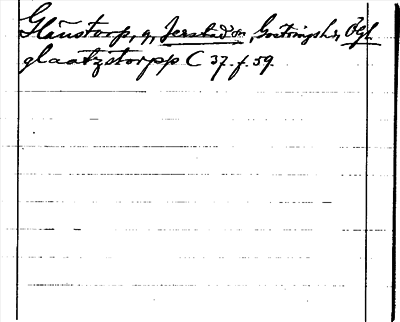 G
Glänstorp, g, Jerstad sn, Gostringshd, Ögl.
glaatzstorpp C 37. f. 59.